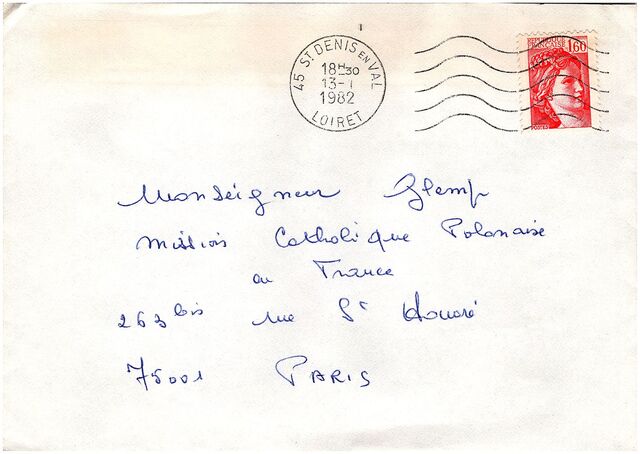 45 ST DENIS EN VAL
18H30
13-1
1982
LOIRET
REPUBLIQUE
FRANÇAISE
1,60
POSTES
Monseigneur Glemp
Mission Catholique Polonaise
en France
263 bis rue St Honoré
75001 PARIS